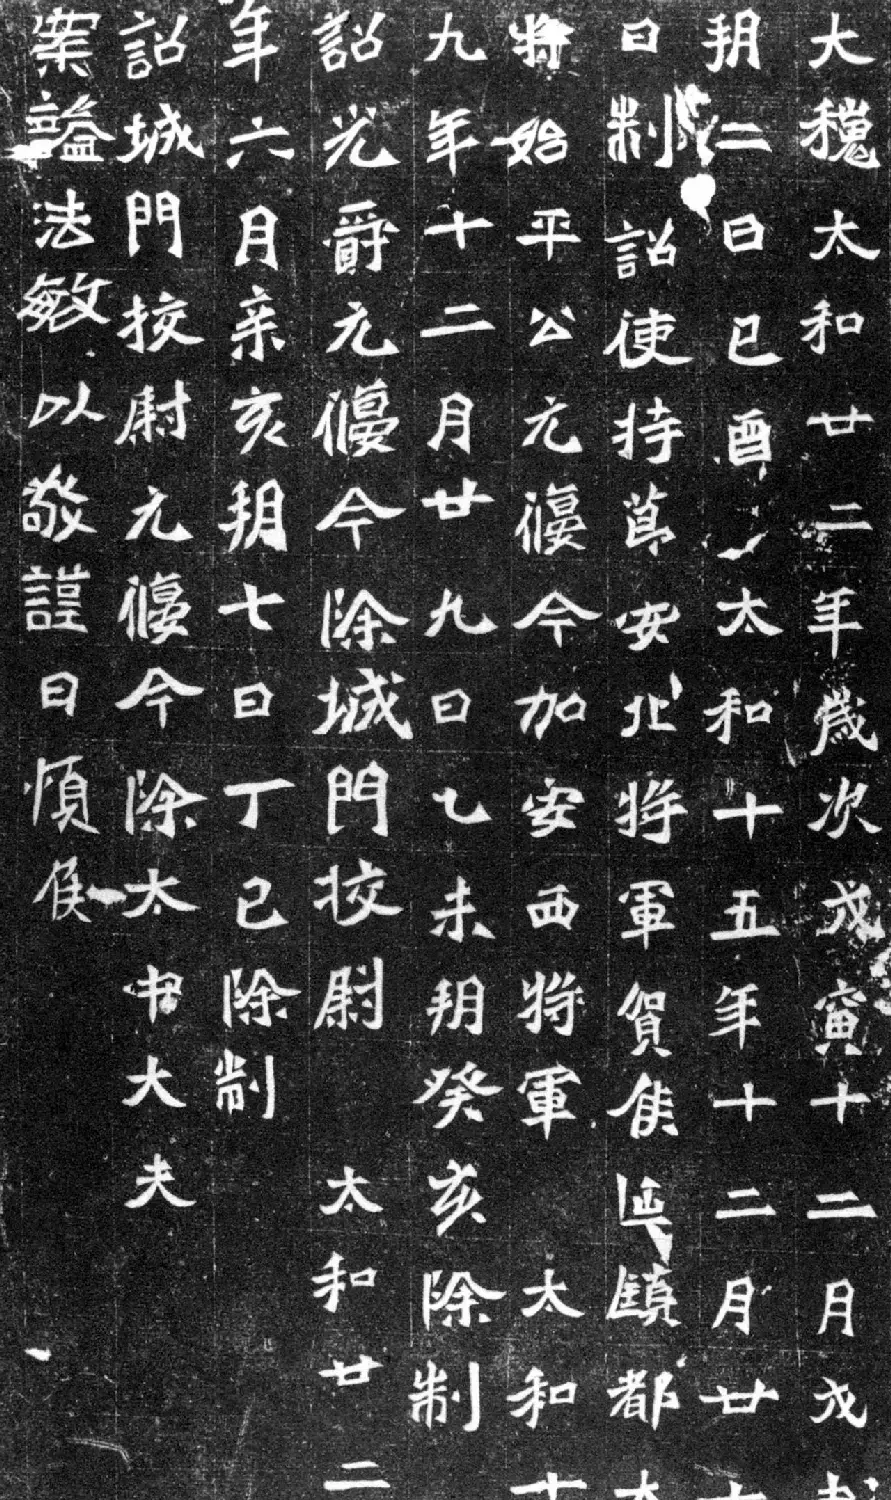 大魏太和廿二年歲次戊寅十二月戊
朔二日己酉太和十五年十二月廿
日制詔使持節安北將軍賀侯延鎮都大
將始平公元偃今加安西將軍 太和十
九年十二月廿九日乙未朔癸亥除制
詔光爵元偃今除城門挍尉 太和廿二
年六月亲亥朔七日丁巳除制
詔城門挍尉元偃今除太中大夫
案謚法敏以敬謹曰順侯